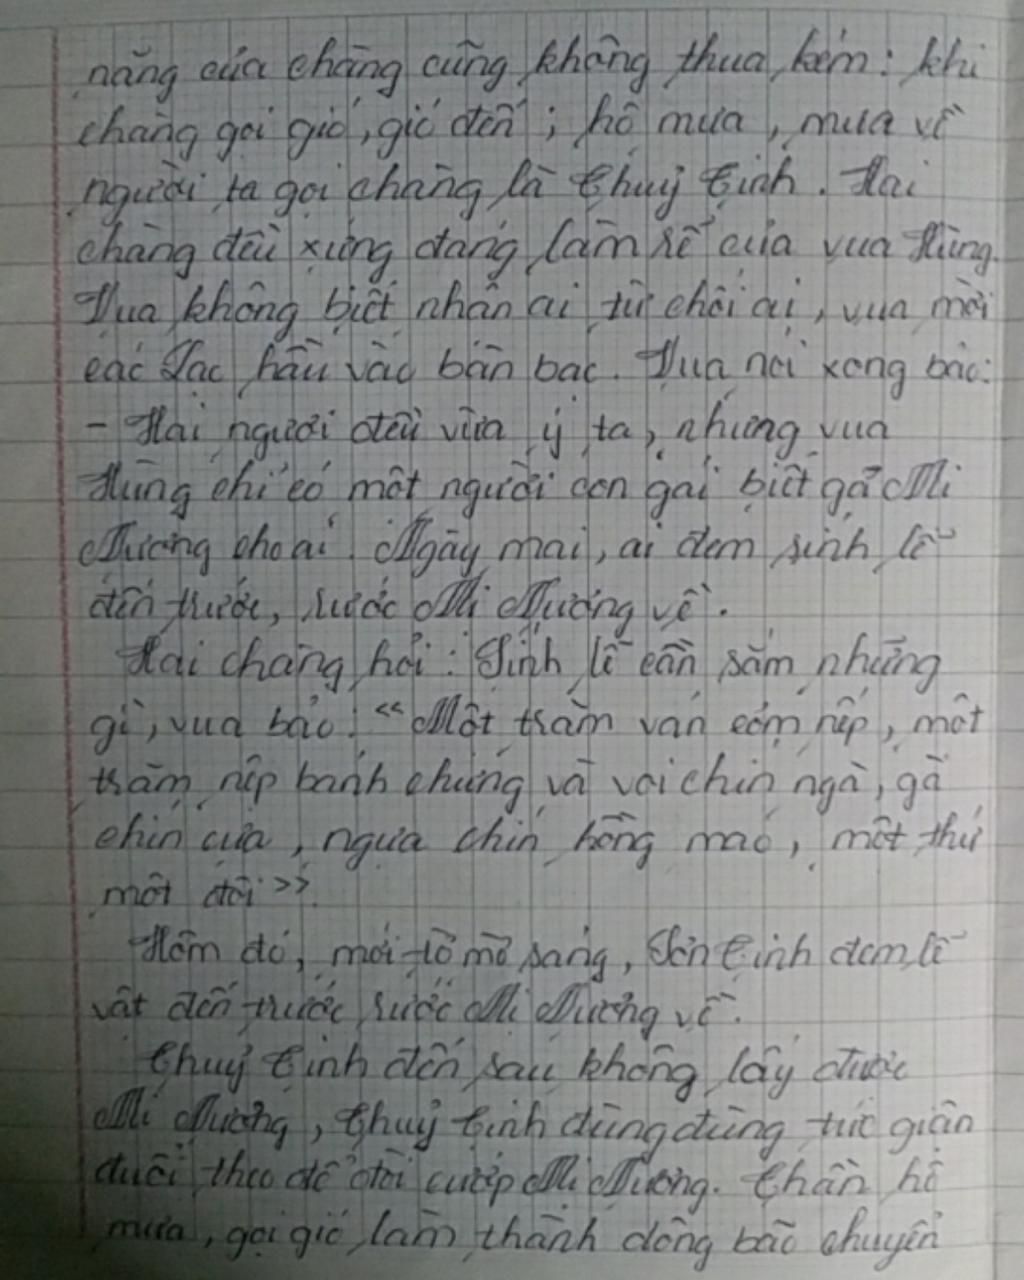 năng của chàng cũng không thua kém: khi
chàng gọi gió, gió đến; hô mưa, mưa về
người ta gọi chàng là Thuỷ Tinh. Hai
chàng đều xứng đáng làm rể của vua Hùng.
Vua không biết nhận ai từ chối ai, vua mời
các Lạc hầu vào bàn bạc. Vua nói xong bảo:
- Hai người đều vừa ý ta, nhưng vua
Hùng chỉ có một người con gái biết gả Mi
Nương cho ai. Ngày mai, ai đem sính lễ
đến trước, rước Mi Nương về.
Hai chàng hỏi: Sính lễ cần sắm những
gì, vua bảo: "Một trăm ván cơm nếp, một
trăm nệp bánh chưng và voi chín ngà, gà
chín cựa, ngựa chín hồng mao, một thứ
một đôi".
Hôm đó, mới tờ mờ sáng, Sơn Tinh đem lễ
vật đến trước rước Mi Nương về.
Thuỷ Tinh đến sau không lấy được
Mi Nương, Thuỷ Tinh đùng đùng tức giận
đuổi theo để đòi cướp Mi Nương. Thần hô
mưa, gọi gió làm thành dông bão chuyển